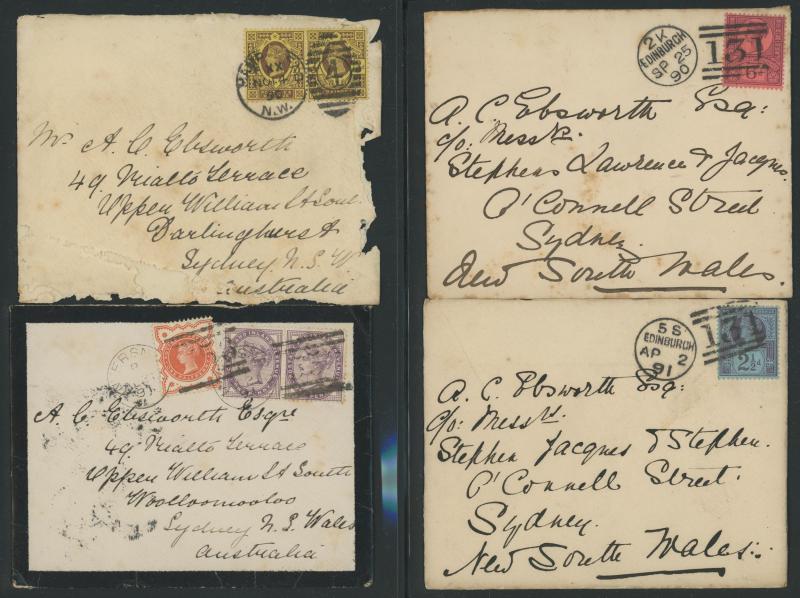 N.W.
Mr A. C. Ebsworth
49 Rialto Terrace
Upper William St South
Darlinghurst
Sydney N. S. W
Australia
2 K
EDINBURGH
SP 25
90
131
6d
A. C. Ebsworth Esq:
c/o: Messrs.
Stephens Lawrence & Jacques.
O'Connell Street
Sydney.
New South Wales.
91
A. C. Ebsworth Esqre
49 Rialto Terrace
Upper William St South
Woolloomooloo
Sydney N. S. Wales
Australia
5 S
EDINBURGH
AP 2
91
131
2½d
A. C. Ebsworth Esq:
c/o: Messrs.
Stephen Jacques & Stephen.
O'Connell Street.
Sydney.
New South Wales.